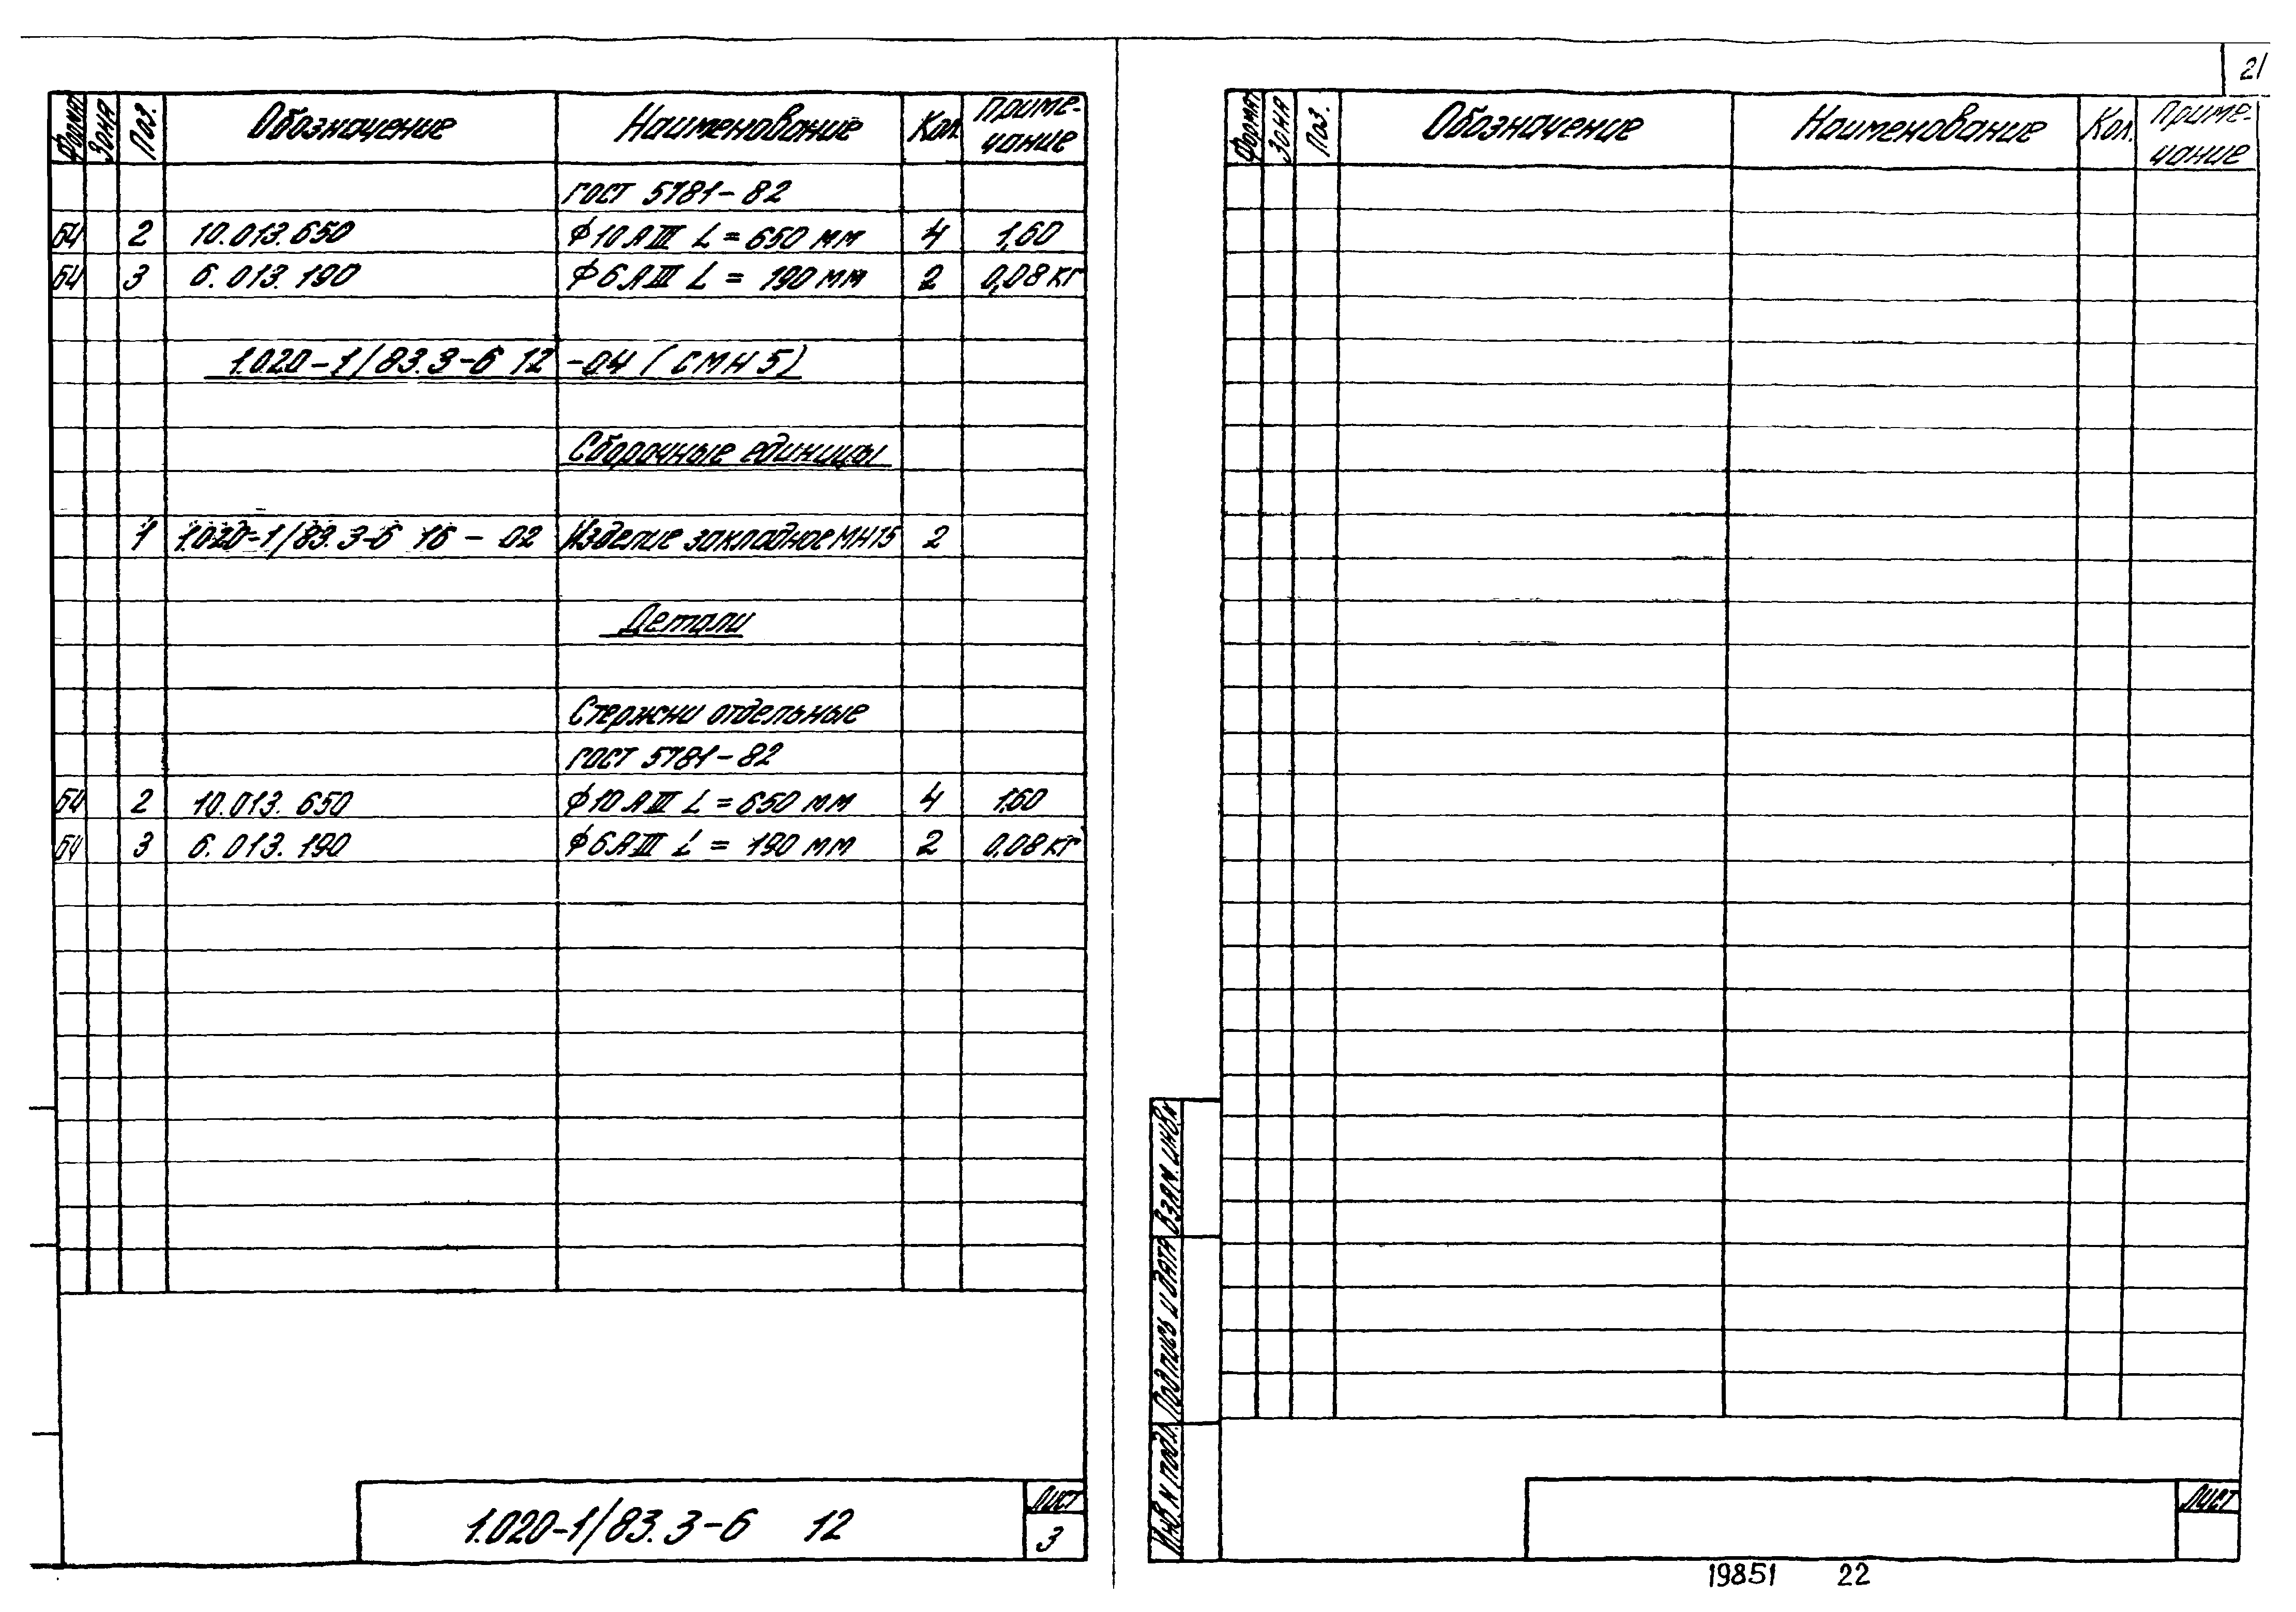 21
Формат Зона Поз. Обозначение Наименование Кол. Приме-
чание
ГОСТ 5781-82
БЧ 2 10.013.650 ф10АIII L=650 мм 4 1,60
БЧ 3 6.013.190 ф6АIII L=190 мм 2 0,08 кг
1.020-1/83.3-6 12 -04 (СМН5)
Сборочные единицы
1 1.020-1/83.3-6 16-02 Изделие закладное МН15 2
Детали
Стержни отдельные
ГОСТ 5781-82
БЧ 2 10.013.650 ф10АIII L=650 мм 4 1,60
БЧ 3 6.013.190 ф6АIII L=190 мм 2 0,08 кг
1.020-1/83.3-6 12
Лист
3
Формат Зона Поз. Обозначение Наименование Кол. Приме-
чание
Взам. инв. №
Подпись и дата
Инв. N подл.
Лист
19851 22